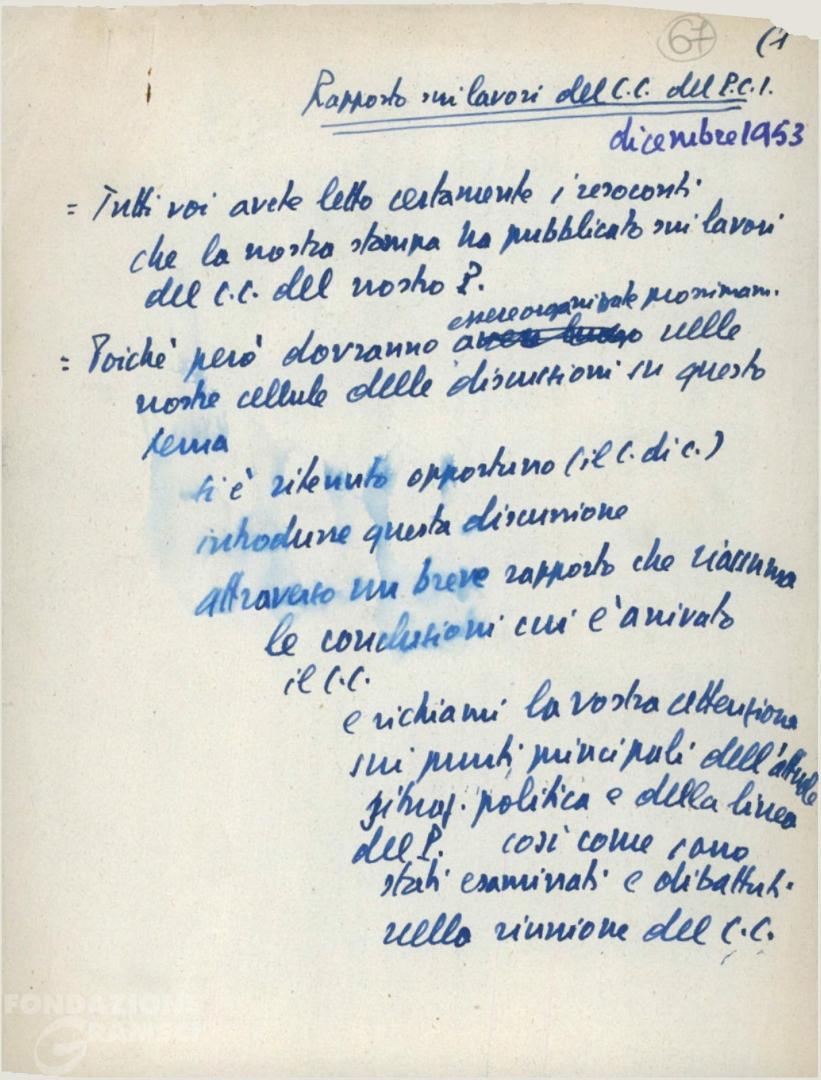 67
(1
Rapporto sui lavori del C.C. del P.C.I.
dicembre 1953
= Tutti voi avete letto certamente i resoconti
che la nostra stampa ha pubblicato sui lavori
del C.C. del nostro P.
essere organizzate prossimam.
= Poiché però dovranno aver luogo nelle
nostre cellule delle discussioni su questo
tema
si è ritenuto opportuno (il C. di c.)
introdurre questa discussione
attraverso un breve rapporto che riassuma
le conclusioni cui è arrivato
il C.C.
e richiami la vostra attenzione
sui punti principali dell'attuale
situaz. politica e della linea
del P. così come sono
stati esaminati e dibattuti
nella riunione del C.C.
FONDAZIONE
GRAMSCI